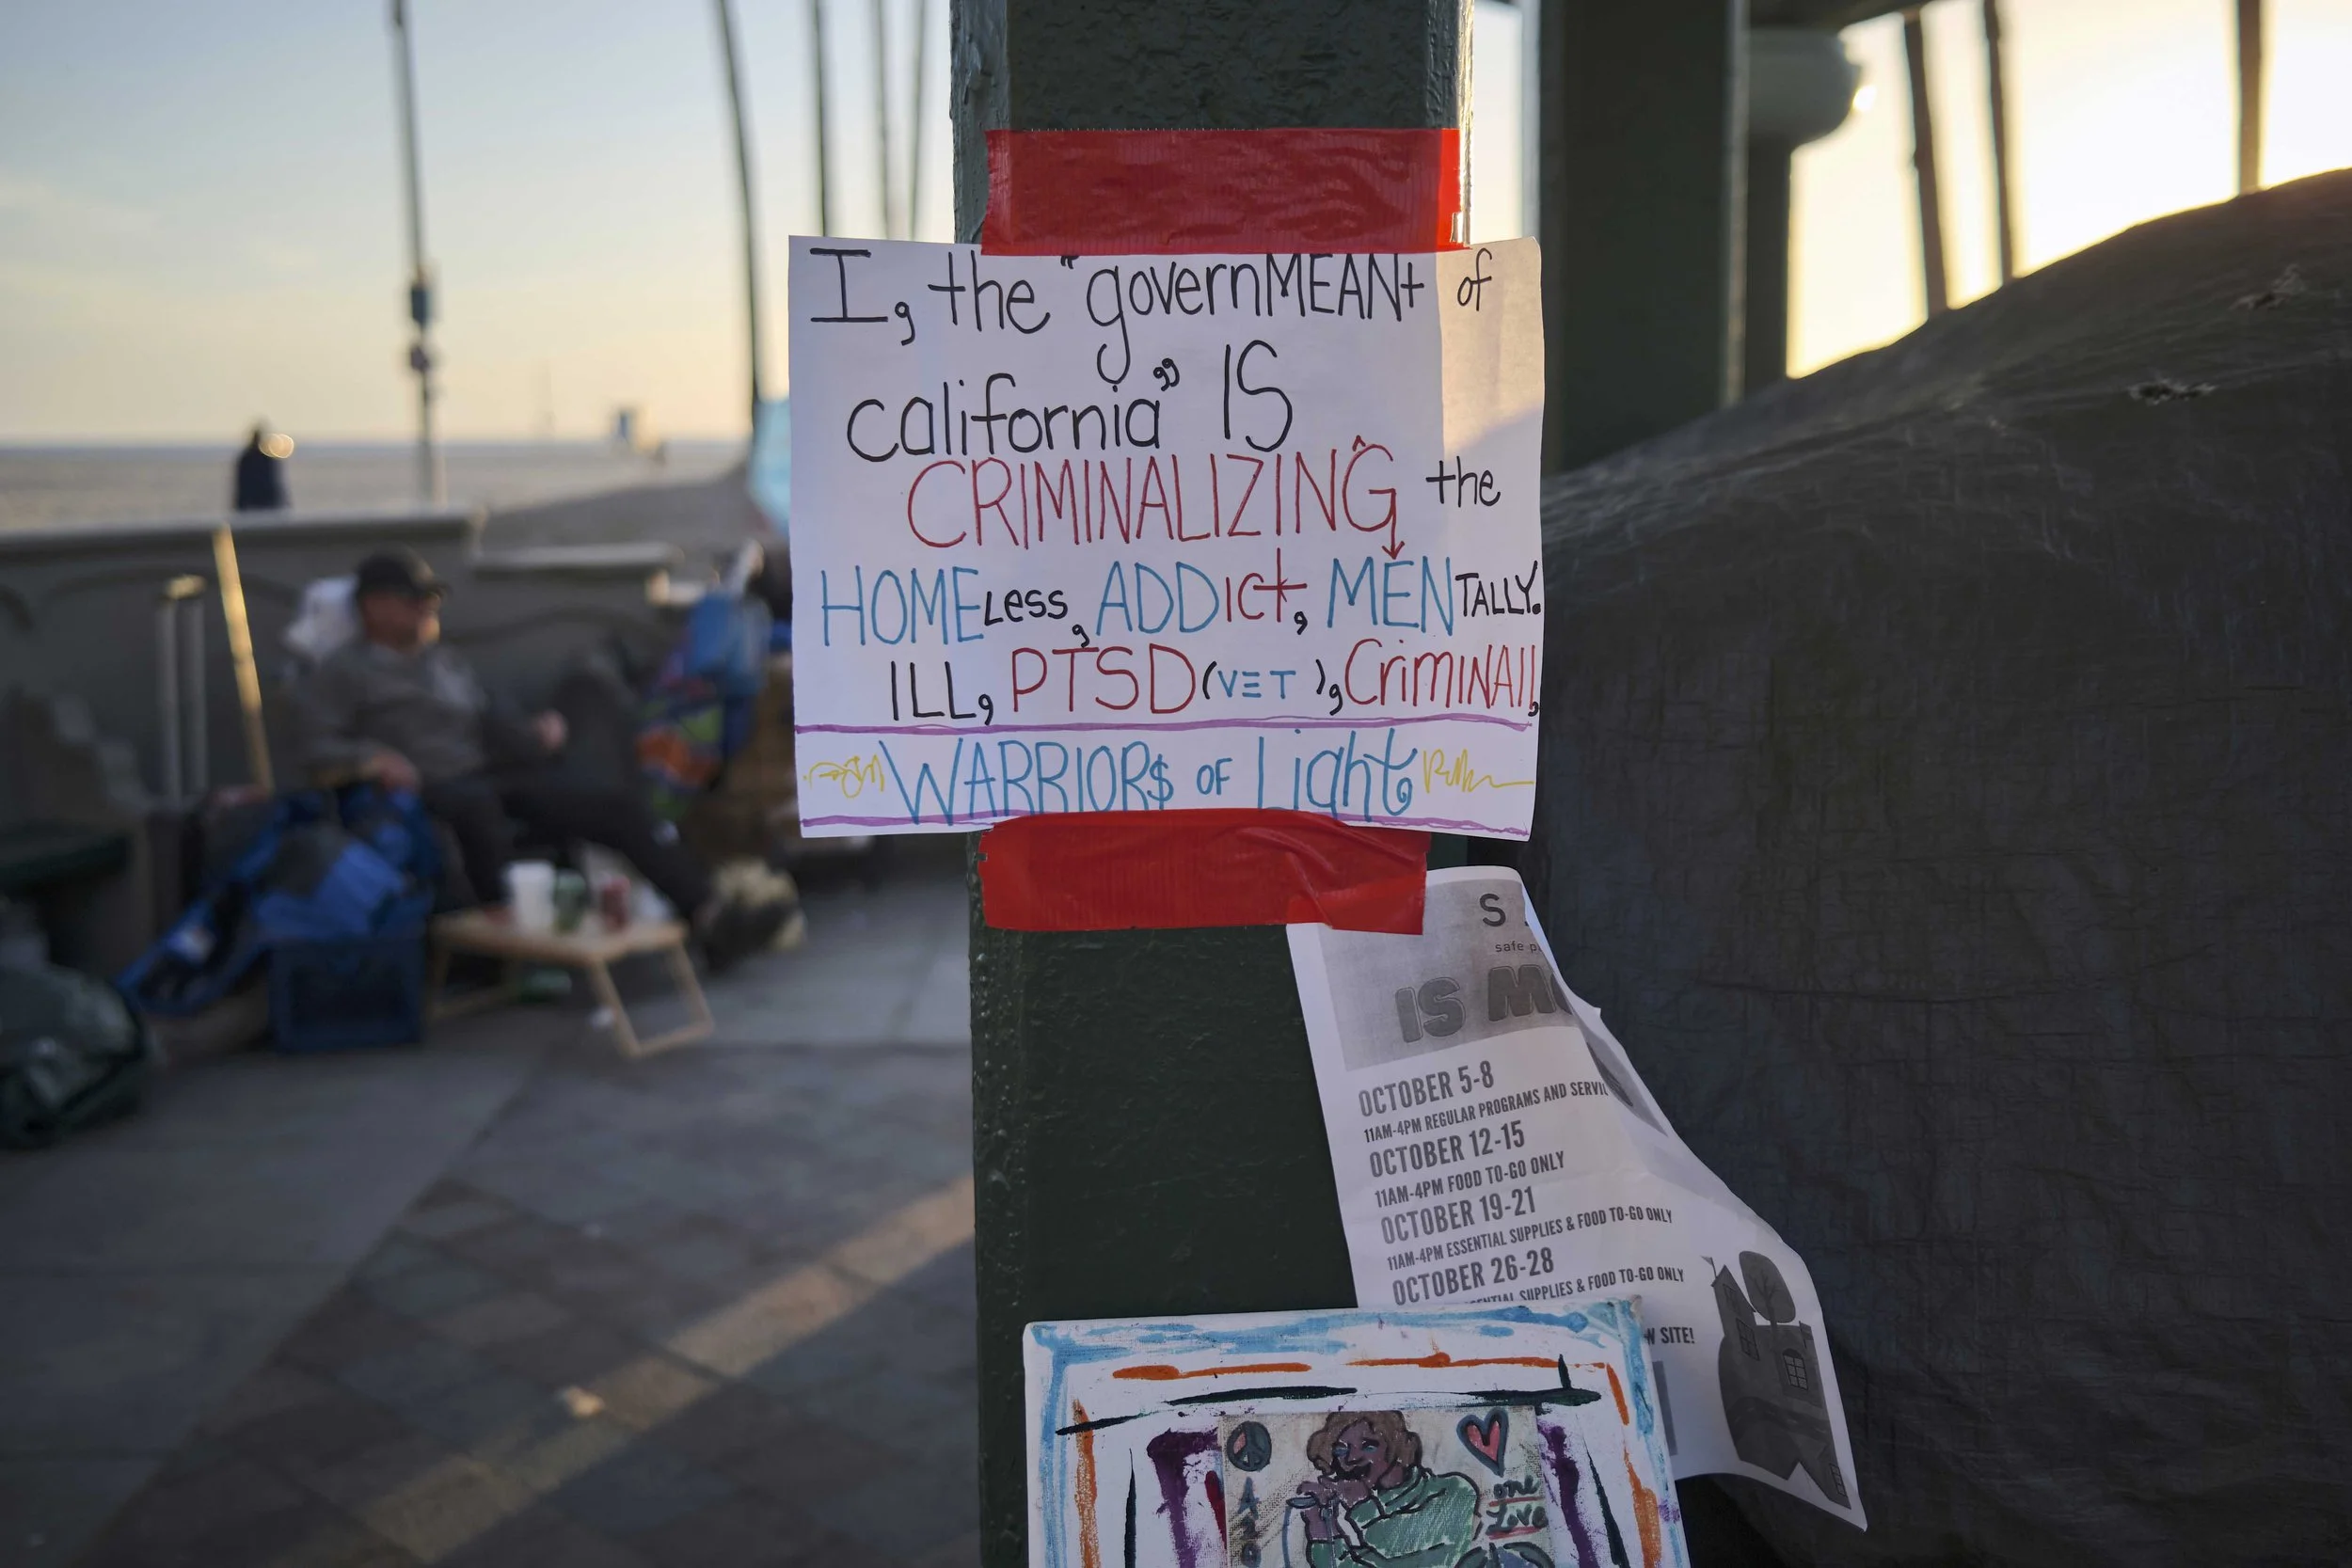 I, the "governMEANt of
california" IS
CRIMINALIZING the
HOMEless, ADDIct, MENTALLY.
ILL, PTSD(VET), CriMINAll,
WARRIOR$ OF Light
S
safe
IS
OCTOBER 5-8
11AM-4PM REGULAR PROGRAMS AND
OCTOBER 12-15
11AM-4PM FOOD TO-GO ONLY
OCTOBER 19-21
11AM-4PM ESSENTIAL SUPPLIES & FOOD TO-GO ONLY
OCTOBER 26-28
SUPPLIES & FOOD TO-GO ONLY
SITE!
one
Love